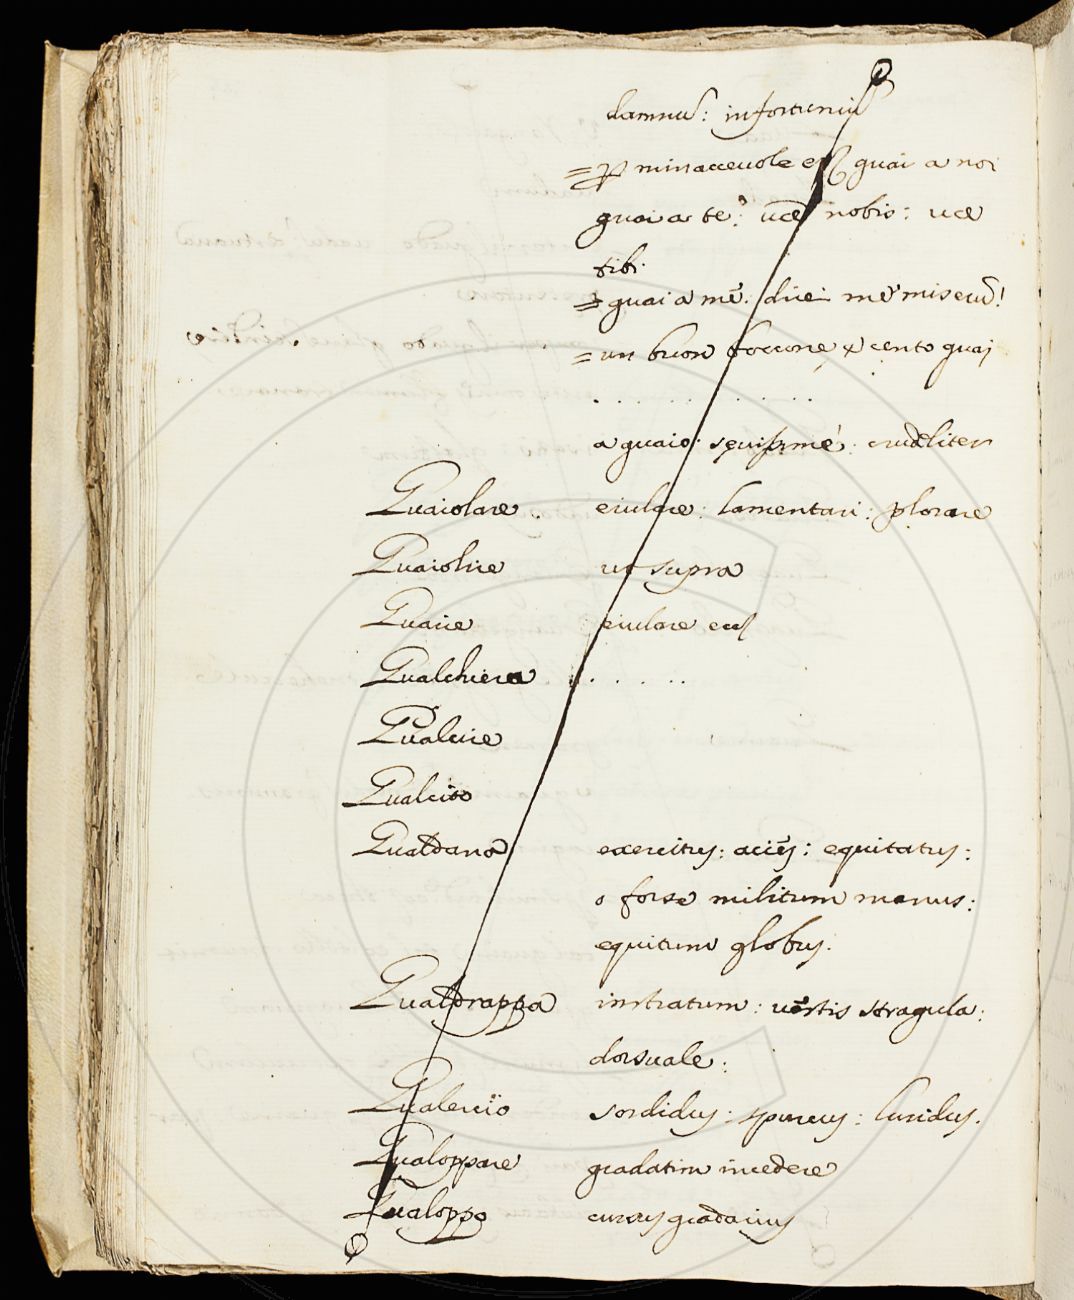 damnũ: infortuniũ
= ꝑ minaccevole esſ guai a noi
guai a te: væ nobis: væ
tibi.
= guai a me. hei me miserũ!
= un buon boccone x cento guai
. . . . . . . .
a guaio. crudeliter
Guaiolare. eiulare: lamentari: plorare
Guaiolire ut supra
Guaire eiulare
Gualchiera . . . . .
Gualcire
Gualcito
Gualdana exercitus: acies: equitatus:
o forse militum manus:
equitum globus:
Gualdrappa instratum: vestis stragula:
dorsuale:
Gualercio sordidus: spurcus: luridus.
Gualoppare gradatim incedere
Gualoppo cursus gradarius